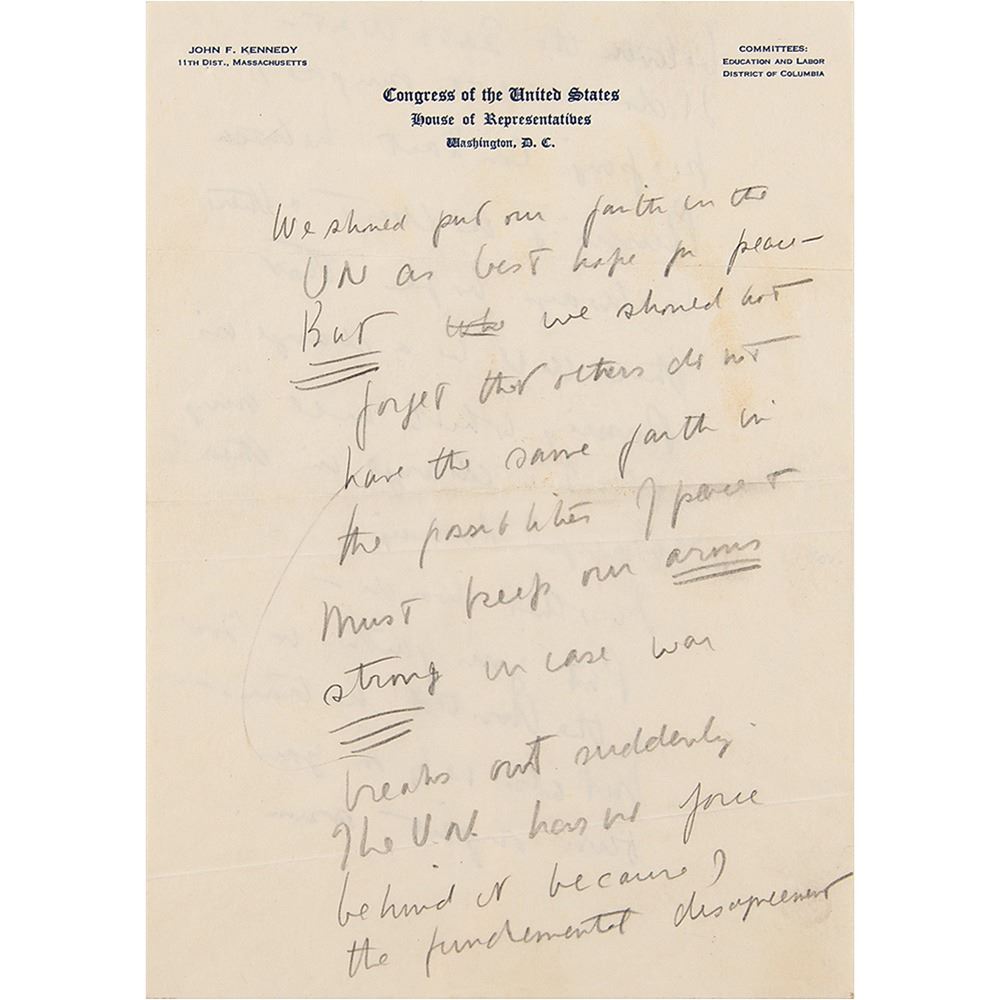 JOHN F. KENNEDY
11TH DIST., MASSACHUSETTS
COMMITTEES:
EDUCATION AND LABOR
DISTRICT OF COLUMBIA
Congress of the United States
House of Representatives
Washington, D. C.
We should put our faith in the
UN as best hope for peace—
But we should not
forget that others do not
have the same faith in
the possibilities of peace &
Must keep our arms
strong in case war
breaks out suddenly.
The U.N. has no force
behind it because of
the fundemental disagreement